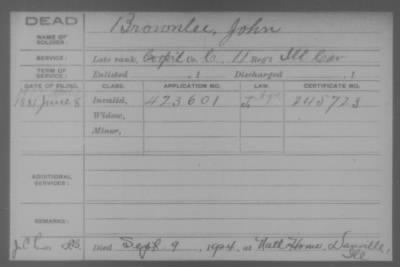 DEAD
NAME OF SOLDIER: Brownlee, John
SERVICE: Late rank, Corp'l Co. C, 11 Reg't Ill Cav
TERM OF SERVICE: Enlisted , 1 Discharged , 1
DATE OF FILING. CLASS. APPLICATION NO. LAW. CERTIFICATE NO.
1881 June 8 Invalid, 423601 245723
Widow,
Minor,
ADDITIONAL SERVICES:
REMARKS:
Died Sept 9, 1904, at Natl Home, Danville,
Ill